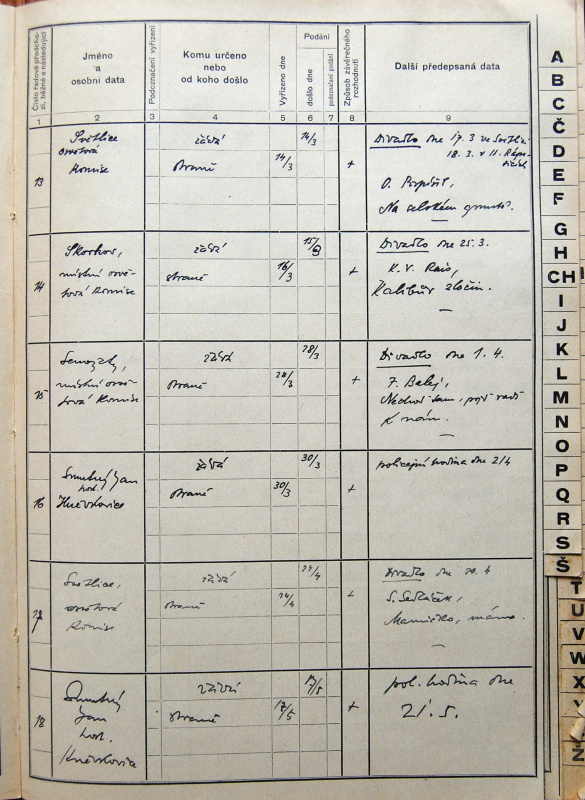 Číslo řadové předchozí, běžné a následující
Jméno
a
osobní data
Podoznačení vyřízení
Komu určeno
nebo
od koho došlo
Vyřízeno dne
Podání
došlo dne
podoznačení podání
Způsob závěrečného
rozhodnutí
Další předepsaná data
1 2 3 4 5 6 7 8 9
13
Světlice
osvětová
komise
žádá
straně
14/3
14/3
+
Divadlo dne 17.3 ve Světlici
18.3. v H.
O.
Na selském gruntě.
14
místní osvě-
tová komise
žádá
straně
16/3
15/3
+
Divadlo dne 25.3.
K. V. Rais,
Kalibův zločin.
15
místní osvě-
tová komise
žádá
straně
28/3
28/3
+
Divadlo dne 1.4.
F. Balej,
k nám.
16
Smutný Jan
host.
Kněžkovice
žádá
straně
30/3
30/3
+
policejní hodina dne 2/4
17
Světlice,
osvětová
komise
žádá
straně
24/4
24/4
+
Divadlo dne
S. Sedláček,
Maminko, mámo.
18
Smutný
Jan
host.
Kněžkovice
žádá
straně
17/5
17/5
+
pol. hodina dne
21.5.
A
B
C
Č
D
E
F
G
H
CH
I
J
K
L
M
N
O
P
Q
R
S
Š
T
U
V
W
X
Ž